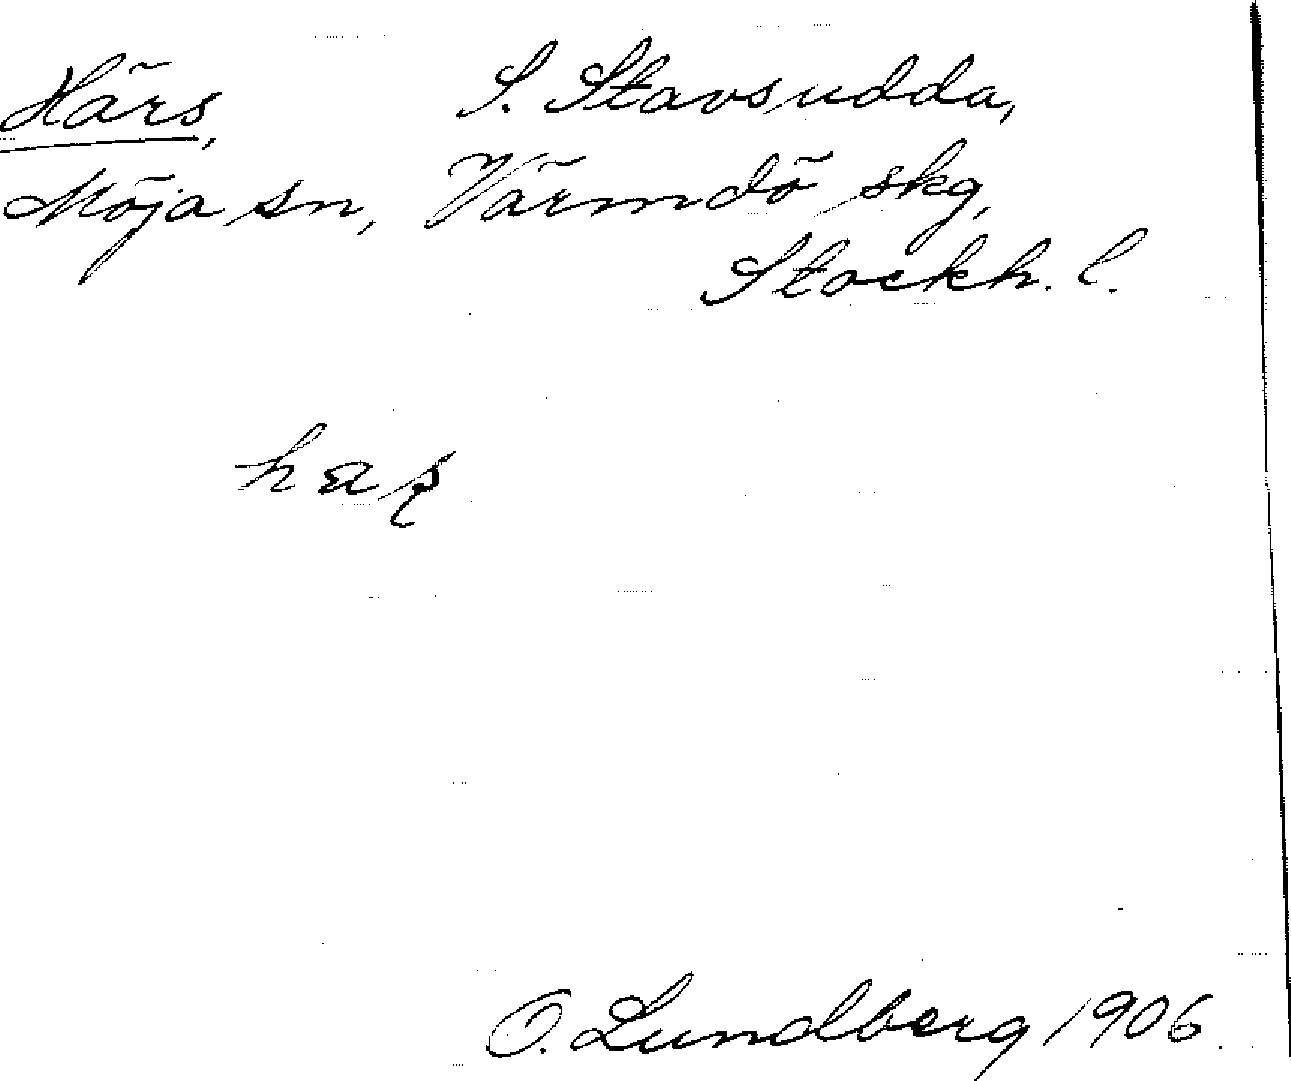 Härs, S. Stavsudda,
Möja sn, Värmdö skg,
Stockh. l.
O. Lundberg 1906.